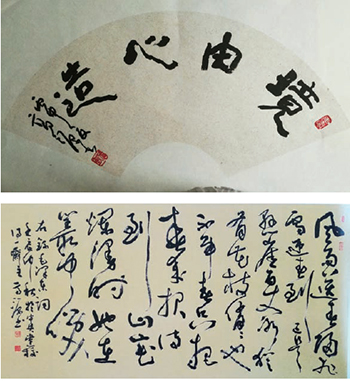 境由心造
风雨送春归飞
雪迎春到已是
悬崖百丈冰犹
有花枝俏俏也
不争春只把
春来报待
到山花
烂漫时她在
丛中笑
右录毛泽东词
仲秋於中央党校